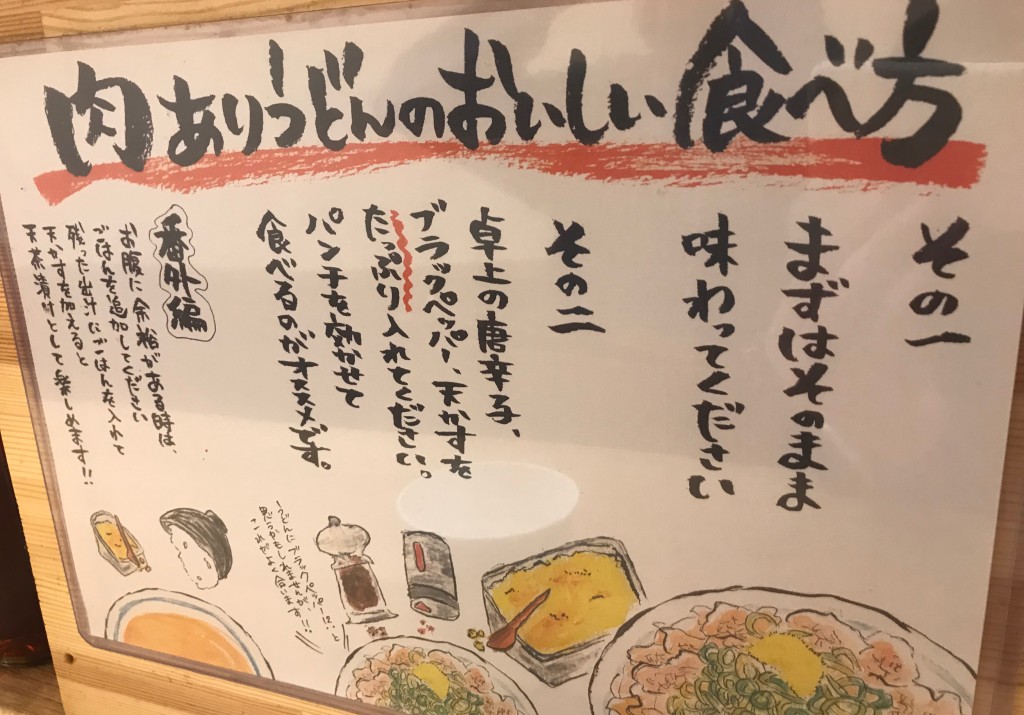 肉ありうどんのおいしい食べ方
その一
まずはそのまま
味わってください
その二
卓上の唐辛子、
ブラックペッパー、天かすを
たっぷり入れてください。
パンチを効かせて
食べるのがオススメです。
番外編
お腹に余裕がある時は、
ごはんを追加してください
残った出汁にごはんを入れて
天かすを加えると
天茶漬けとして楽しめます!!
うどんにブラックペッパーに…と
思うかもしれませんが、
これがよく合います!!